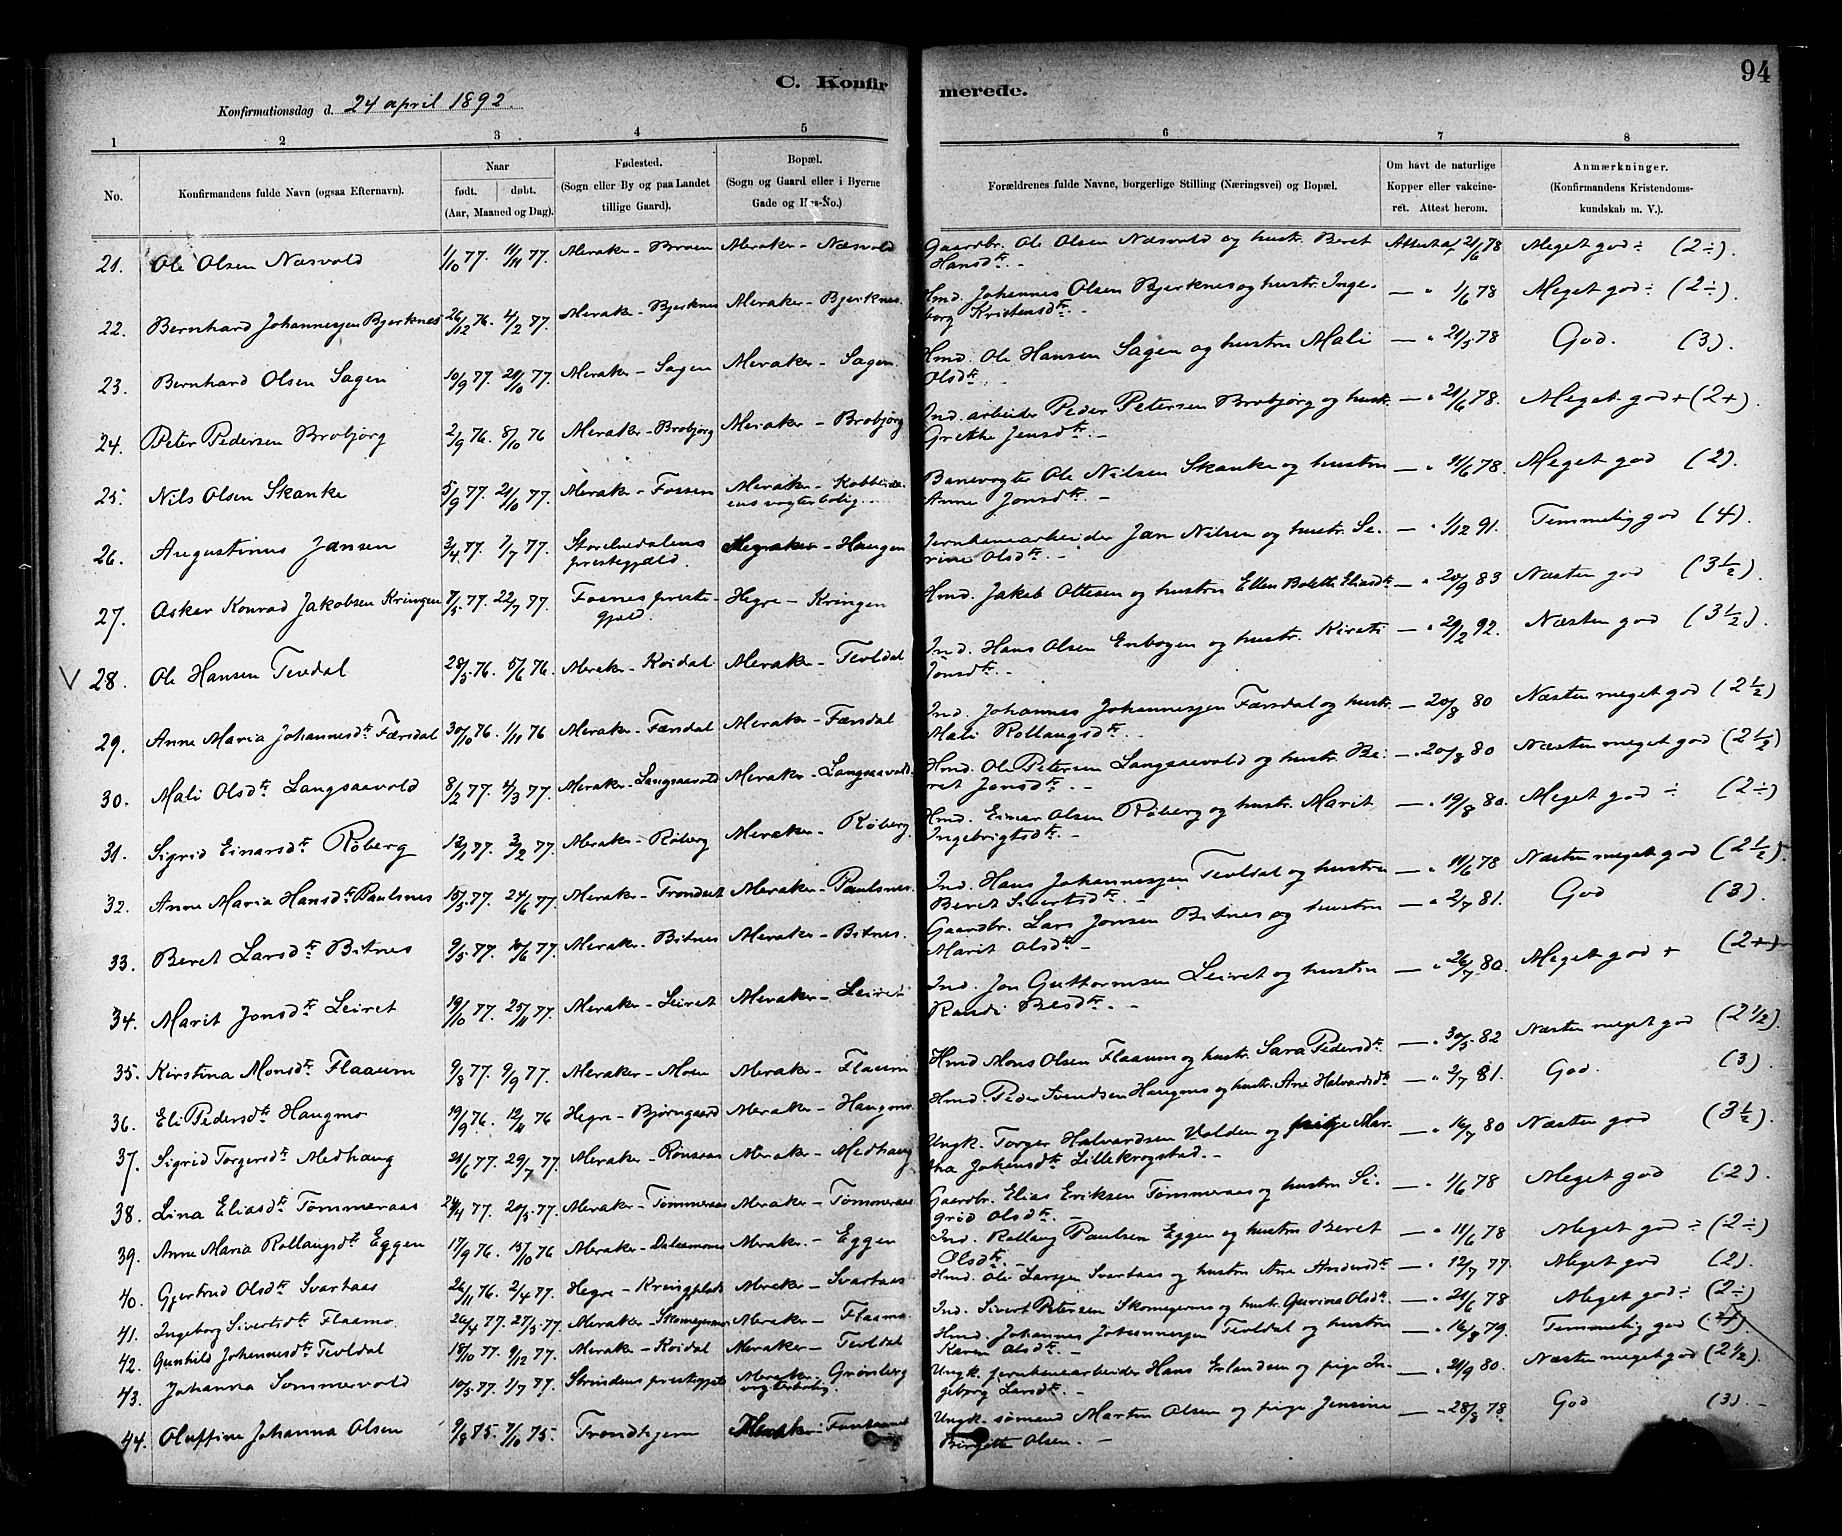 94
C. Konfirmerede.
Konfirmationsdag d. 24 april 1892.
1 2 3 4 5 6 7 8
No. Konfirmandens fulde Navn (ogsaa Efternavn). Naar født. døbt. (Aar, Maaned og Dag). Fødested. (Sogn eller By og paa Landet tillige Gaard). Bopæl. (Sogn og Gaard eller i Byerne Gade og Hus-No.) Forældrenes fulde Navne, borgerlige Stilling (Næringsvei) og Bopæl. Om havt de naturlige Kopper eller vakcineret. Attest herom. Anmærkninger. (Konfirmandens Kristendomskundskab m. V.).
21. Ole Olsen Næsvold 1/10 77. 11/11 77. Meraker - Meraker - Næsvold Gaardbr. Ole Olsen Næsvold og hustr. Beret Hansdtr. - Attest af 21/6 78 Meget god ÷ (2÷).
22. Bernhard Johannesen Bjerknes 26/12 76. 4/2 77. Merak - Bjerknes Meraker - Bjerknes. Hmd. Johannes Olsen Bjerknes og hustr. Ingeborg Kristensdtr. - — " 1/6 78 Meget god ÷ (2÷)
23. Bernhard Olsen Sagen 10/9 77. 21/10 77. Meraker - Sagen Meraker - Sagen. Hmd. Ole Hansen Sagen og hustru Mali Olsdtr. — " 21/5 78 God. (3).
24. Peter Pedersen Brobjörg 2/9 76. 8/10 76 Meraker - Brobjörg Meraker - Brobjörg Ind. arbeider Peder Petersen Brobjörg og hustr. Grethe Jensdtr. - — " 21/6 78. Meget god + (2+).
25. Nils Olsen Skanke 5/9 77. 21/10 77. Merak - Fossen Meraker - vogterbolig Banevogter Ole Nilsen Skanke og hustru Anne Jonsdtr. - — " 11/6 78. Meget god (2).
26. Augustinus Jansen 3/4 77. 1/7 77. Storelvedalens prestegjæld. Meraker - Haugen Jernbanearbeider Jan Nilsen og hustr. Serine Olsdtr. - — " 1/12 91. Temmelig god (4).
27. Asker Konrad Jakobsen Kringen 7/5 77. 22/7 77. Fosnes prestegjæld. Hegre - Kringen Hmd. Jakob Ottesen og hustru Ellen Bolette Eliasdtr — " 20/9 83 Næsten god (3 1/2)
V 28. Ole Hansen Tevdal 28/5 76. 5/6 76. Meraker - Koidal Meraker - Tevldal Ind. Hans Olsen Enbogen og hustr. Kirsti Jonsdtr. - — " 29/2 92. Næsten god (3 1/2).
29. Anne Maria Johannesdtr Færsdal 30/10 76. 1/11 76 Meraker - Færsdal Meraker - Færsdal Ind. Johannes Johannesen Færsdal og hustr. Mali Rollaugsdtr. - — 20/8 80 Næsten meget god (2 1/2)
30. Mali Olsdtr Langsaavold 8/2 77. 4/3 77. Meraker - Langsaavold Meraker - Langsaavold. Hmd. Ole Petersen Langsaavold og hustr. Beret Jonsdtr. - — " 20/8 80 Næsten meget god (2 1/2)
31. Sigrid Einarsdtr Röberg 12/1 77. 3/2 77. Meraker - Röberg Meraker - Röberg. Hmd. Einar Olsen Röberg og hustr. Marit Ingebrigtsdtr. - — " 19/8 80. Meget god ÷ (2÷)
32. Anne Maria Hansdtr Paulsnes 15/5 77. 24/6 77. Meraker - Trondset Meraker - Paulsnes. Ind. Hans Johannesen Tevldal og hustru Beret Sivertsdtr. - — " 11/6 78 Næsten meget god (2 1/2).
33. Beret Larsdtr Bitnes 9/5 77. 10/6 77. Meraker - Bitnes Meraker - Bitnes. Gaardbr. Lars Jonsen Bitnes og hustru Marit Olsdtr. - — " 2/7 81. God (3).
34. Marit Jonsdtr Leiret 19/10 77. 25/11 77. Meraker - Leiret Meraker - Leiret Ind. Jon Guttormsen Leiret og hustru Randi — " 26/7 80. Meget god + (2+)
35. Kirstina Monsdtr Flaaum 9/8 77. 9/9 77. Meraker - Moen Meraker - Flaaum Hmd Mons Olsen Flaaum og hustr. Sara Pedersdtr. — " 30/5 82 Næsten meget god (2 1/2).
36. Eli Pedersdtr Haugmo 19/9 76. 12/11 76 Hegre - Björngaard Meraker - Haugmo Hmd. Peder Svendsen Haugmo og hustr. Ane Halvardsdtr — " 2/7 81. God. (3)
37. Sigrid Torgersdtr Medhaug 21/6 77. 29/7 77. Meraker - Rönsaas Meraker - Medhaug Ungk. Torger Halvardsen Volden og pige Martha Johensdtr Lillekrogstad. - — " 16/7 80 Næsten god (3 1/2).
38. Lina Eliasdtr Tömmeraas 24/4 77. 20/5 77. Meraker - Tömmeraas Meraker - Tömmeraas Gaardbr. Elias Eriksen Tömmeraas og hustru Sigrid Olsdtr. - — " 1/6 78 Meget god (2).
39. Anne Maria Rollaugsdtr Eggen 17/9 76. 15/10 76 Meraker - Dalaamoen Merak. - Eggen Ind. Rollaug Paulsen Eggen og hustru Beret Olsdtr. - — " 11/6 78 Meget god ÷ (2÷)
40. Gjertrud Olsdtr Svartaas 26/11 76. 2/4 77. Hegre - Kringplads Meraker - Svartaas Hmd. Ole Larsen Svartaas og hustru Ane Andersdtr — " 12/7 77. Meget god (2).
41. Ingeborg Sivertsdtr Flaamo. 26/4 77. 27/5 77. Meraker - Meraker - Flaamo. Ind. Sivert Petersen og hustr. Gurina Olsdtr. — " 21/6 78 Meget god ÷ (2÷)
42. Gunhild Johannesdtr Tevldal 18/10 77. 9/12 77. Meraker - Koidal Meraker - Tevldal Hmd. Johannes Johannesen Tevldal og hustru Karen Olsdtr. - — " 16/8 79. Temmelig god (4).
43. Johanna Sommervold 10/5 77. 1/7 77. Strindens prestegjæld Meraker - Grönberg vogterbolig. Ungk. jernbanearbeider Hans Erlandsen og pige Ingebjörg Larsdtr. - — " 21/9 80. Næsten meget god (2 1/2).
44. Oluffine Johanna Olsen 9/8 75. 7/10 75. Trondhjem Meraker - Ungk. sömand Martin Olsen og pige Jensine Birgitte Olsen. - — " 28/8 78. God (3). -